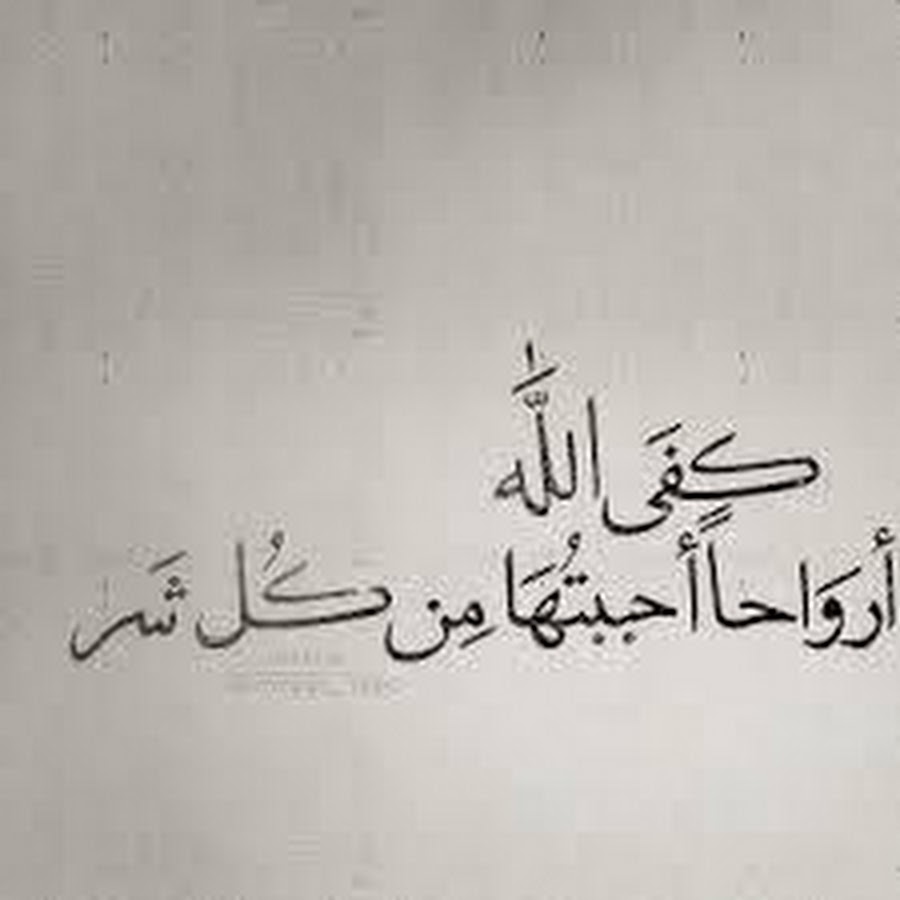 كفَى اللَّه
أروَاحاً أحببتُهَا مِن كُل شَر